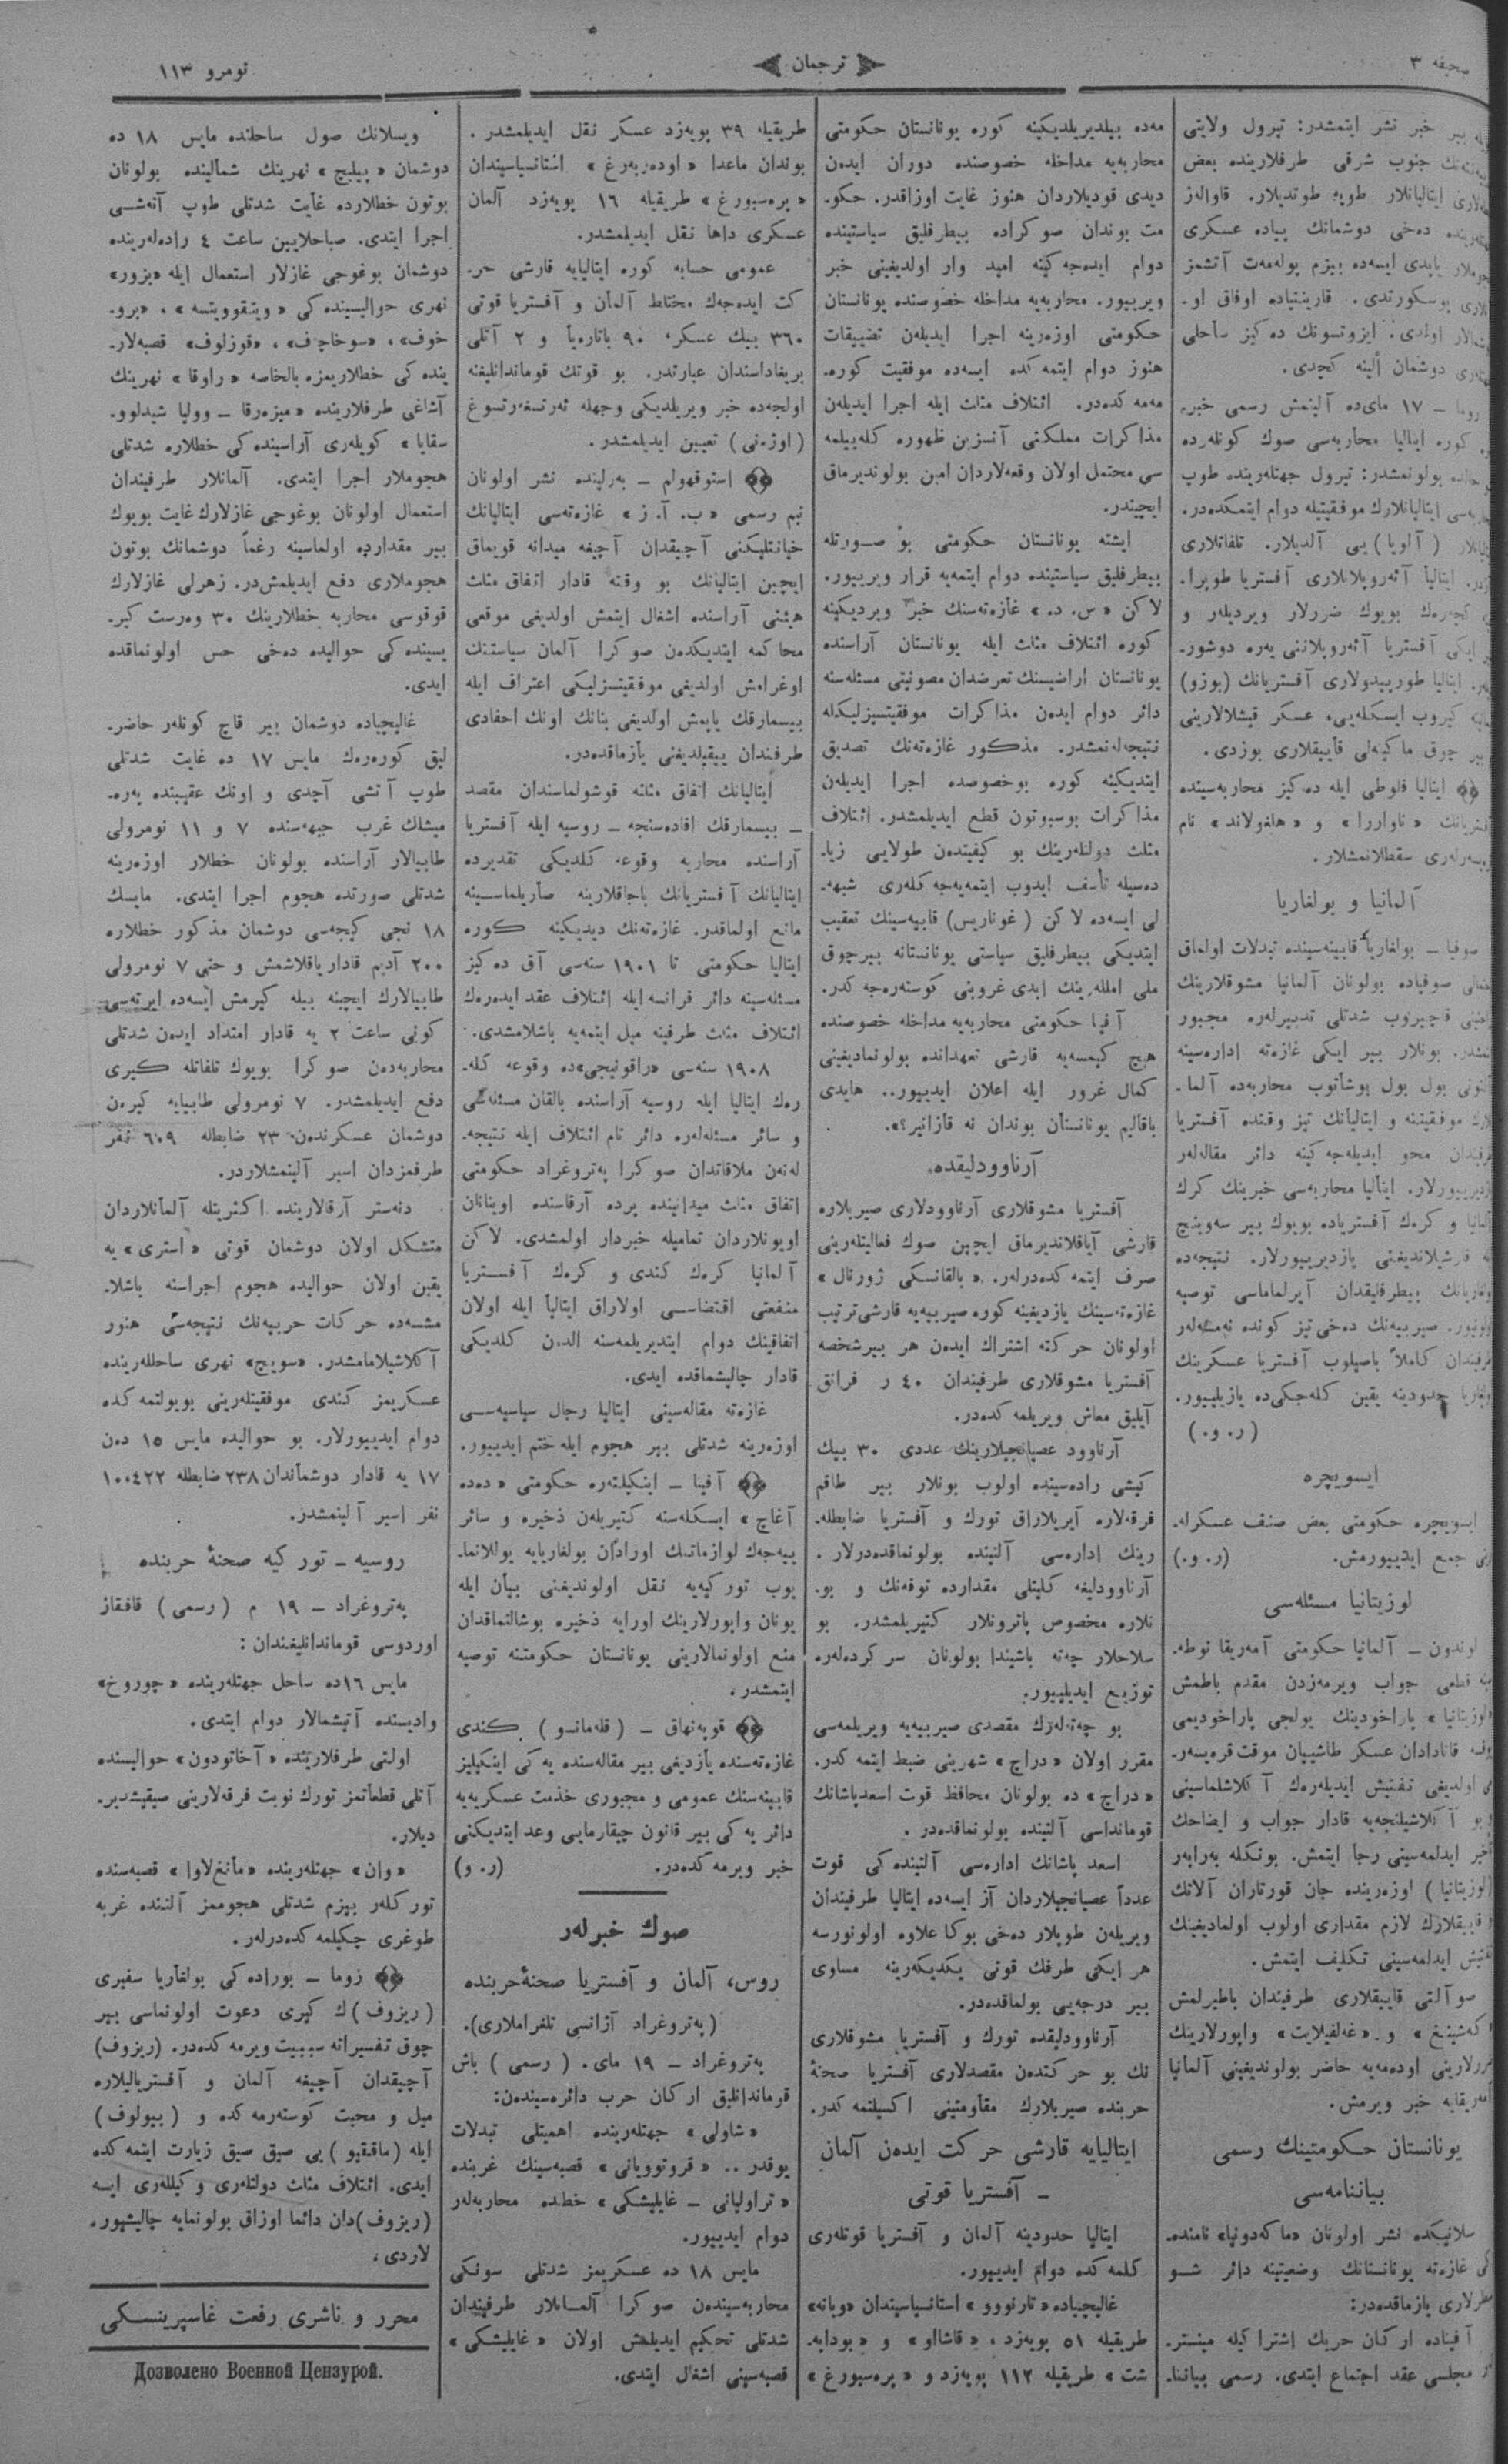 صحیفه ٣
ترجمان
نومرو ١١٣
خبر نشر ایتمشدر: تیرول ولایتی
جنوب شرقی طرفلارینده بعض
ایتالیانلار طوپه طوتدیلار. قاواله‌ز
ده‌خی دوشمانك پیاده عسكری
یاپدی ایسه‌ده بیزم پوله‌مه‌ت آتشمز
پوسكورتدی. قارینتیاده اوفاق او-
اولدی. ایزونسونك ده‌كیز ساحلی
دوشمان ألینه كچدی.
روما — ١٧ مای‌ده آلینمش رسمی خبره
كوره ایتالیا محاربه‌سی صوك كونله‌رده
بولونمشدر: تیرول جهتله‌رینده طوپ
ایتالیانلارك موفقیتیله دوام ایتمكده‌در.
(آلویا) یی آلدیلار. تلفاتلاری
ایتالیا آئه‌روپلانلاری آفستریا طوپرا-
بویوك ضررلار ویردیله‌ر و
ایكی آفستریا آئه‌روپلاننی یه‌ره دوشور-
ایتالیا طورپیدولاری آفستریانك (بوزو)
كیروب ایسكله‌یی، عسكر قیشلالارینی
چوق ماكینه‌لی قاییقلاری بوزدی.
ایتالیا فلوطی ایله ده‌كیز محاربه‌سینده
«ناواررا» و «هلغولاند» نام
سقطلانمشلار.
آلمانیا و بولغاریا
صوفیا — بولغاریا قابینه‌سینده تبدلات اولماق
صوفیاده بولونان آلمانیا مشوقلارینك
قاچیروب شدتلی تدبیرله‌ره مجبور
بونلار بیر ایكی غازه‌ته إداره‌سینه
بول بول پوشاتوب محاربه‌ده آلما-
موفقیتنه و ایتالیانك تیز وقتده آفستریا
محو ایدیله‌جه‌كینه دائر مقاله‌لر
ایتالیا محاربه‌سی خبرینك كرك
و كره‌ك آفستریاده بویوك بیر سه‌وینچ
قارشیلاندیغنی یازدیرییورلار. نتیجه‌ده
بیطرفلیقدان آیرلماماسی توصیه
صیربیه‌نك ده‌خی تیز كونده نه‌مسه‌لر
كاملاً باصیلوب آفستریا عسكرینك
حدودینه یقین كله‌جكی‌ده یازیلییور.
(ر. و.)
ایسویچره
ایسویچره حكومتی بعض صنف عسكرله-
جمع ایدییورمش. (ر. و.)
لوزیتانیا مسئله‌سی
لوندون — آلمانیا حكومتی آمه‌ریقا نوطه-
قطعی جواب ویرمه‌زدن مقدم باطمش
«لوزیتانیا» پاراخودینك یولجی پاراخودیمی
قانادادان عسكر طاشییان موقت قره‌یسه‌ر-
اولدیغی تفتیش ایدیله‌ره‌ك آكلاشلماسینی
آكلاشیلنجه‌یه قادار جواب و ایضاحك
ایدلمه‌سینی رجا ایتمش. بونكله به‌رابه‌ر
(لوزیتانیا) اوزه‌رینده جان قورتاران آلاتك
لازم مقداری اولوب اولمادیغینك
ایدلمه‌سینی تكلیف ایتمش.
صوآلتی قاییقلاری طرفیندان باطیرلمش
«غه‌لفیلایت» واپورلارینك
ضررلارینی اوده‌مه‌یه حاضر بولوندیغینی آلمانیا
آمه‌ریقایه خبر ویرمش.
یونانستان حكومتینك رسمی
بیاننامه‌سی
سلانیكده نشر اولونان «ماكه‌دونیا» نامنده-
كی غازه‌ته یونانستانك وضعیتینه دائر شو
سطرلاری یازماقده‌در:
آفیناده اركان حربك إشتراكیله مینستر-
مجلسی عقد اجتماع ایتدی. رسمی بیاننا-
مه‌ده بیلدیریلدیكینه كوره یونانستان حكومتی
محاربه‌یه مداخله خصوصنده دوران ایده‌ن
دیدی قودیلاردان هنوز غایت اوزاقدر. حكو-
مت بوندان صوكراده بیطرفلیق سیاستینده
دوام ایده‌جه‌كینه امید وار اولدیغینی خبر
ویرییور. محاربه‌یه مداخله خصوصنده یونانستان
حكومتی اوزه‌رینه اجرا ایدیله‌ن تضییقات
هنوز دوام ایتمه‌كده ایسه‌ده موفقیت كوره-
مه‌مه‌كده‌در. ائتلاف مثلث ایله اجرا ایدیله‌ن
مذاكرات مملكتی آنسزین ظهوره كله‌بیلمه
سی محتمل اولان وقعه‌لاردان امین بولوندیرماق
ایچیندر.
ایشته یونانستان حكومتی بو صورتله
بیطرفلیق سیاستینده دوام ایتمه‌یه قرار ویرییور.
لاكن «س. د.» غازه‌ته‌سنك خبر ویردیكینه
كوره ائتلاف مثلث ایله یونانستان آراسنده
یونانستان اراضیسنك تعرضدان مصونیتی مسئله‌سنه
دائر دوام ایده‌ن مذاكرات موفقیتسیزلیكله
نتیجه‌له‌نمشدر. مذكور غازه‌ته‌نك تصدیق
ایتدیكینه كوره بوخصوصده اجرا ایدیله‌ن
مذاكرات بوسبوتون قطع ایدیلمشدر. ائتلاف
مثلث دولتله‌رینك بو كیفیتدن طولایی زیا-
ده‌سیله تأسف ایدوب ایتمه‌یه‌جه‌كله‌ری شبهه-
لی ایسه‌ده لاكن (غوناریس) قابینه‌سینك تعقیب
ایتدیكی بیطرفلیق سیاستی یونانستانه بیرچوق
ملی امللـه‌رینك ابدی غروبنی كوستره‌جه‌كدر.
آفینا حكومتی محاربه‌یه مداخله خصوصنده
هیچ كیمسه‌یه قارشی تعهدانده بولونمادیغینی
كمال غرور ایله اعلان ایدییور.. هایدی
باقالیم یونانستان بوندان نه قازانیر؟».
آرناوودلیقده.
آفستریا مشوقلاری آرناوودلاری صیربلاره
قارشی آیاقلاندیرماق ایچین صوك فعالیتله‌رینی
صرف ایتمه‌كده‌درلر. «بالقانسكی ژورنال»
غازه‌ته‌سینك یازدیغینه كوره صیربیه‌یه قارشی ترتیب
اولونان حركته اشتراك ایده‌ن هر بیر شخصه
آفستریا مشوقلاری طرفیندان ٤٠ ر فرانق
آیلیق معاش ویریلمه‌كده‌در.
آرناوود عصیانجیلارینك عددی ٣٠ بیك
كیشی راده‌سینده اولوب بونلار بیر طاقم
فرقه‌لاره آیریلاراق تورك و آفستریا ضابطله-
رینك إداره‌سی آلتینده بولونماقده‌درلار.
آرناوودلیغه كلیتلی مقدارده توفه‌نك و بو-
نلاره مخصوص پاترونلار كتیریلمشدر. بو
سلاحلار چه‌ته باشیندا بولونان سركرده‌له‌ره
توزیع ایدیلییور.
بو چه‌ته‌له‌رك مقصدی صیربیه‌یه ویریلمه‌سی
مقرر اولان «دراچ» شهرینی ضبط ایتمه‌كدر.
«دراچ» ده بولونان محافظ قوت اسعدپاشانك
قومانداسی آلتینده بولونماقده‌در.
اسعد پاشانك اداره‌سی آلتینده‌كی قوت
عدداً عصیانجیلاردان آز ایسه‌ده ایتالیا طرفیندان
ویریله‌ن طوپلار ده‌خی بوكا علاوه اولونورسه
هر ایكی طرفك قوتی یكدیكه‌رینه مساوی
بیر درجه‌یی بولماقده‌در.
آرناوودلیقده تورك و آفستریا مشوقلاری
نك بو حركتدن مقصدلاری آفستریا صحنهٔ
حربنده صیربلارك مقاومتینی اكسیلتمه‌كدر.
ایتالیایه قارشی حركت ایده‌ن آلمان
— آفستریا قوتی
ایتالیا حدودینه آلمان و آفستریا قوتله‌ری
كلمه‌كده دوام ایدییور.
غالیچیاده «تارنووو» استانسیاسیندان «ویانه»
طریقیله ٥١ پویه‌زد، «قاشااو» و «بوداپه-
شت» طریقیله ١١٢ پویه‌زد و «پره‌سبورغ»
طریقیله ٣٩ پویه‌زد عسكر نقل ایدیلمشدر.
بوندان ماعدا «اوده‌ربه‌رغ» استانسیاسیندان
«پره‌سبورغ» طریقیله ١٦ پویه‌زد آلمان
عسكری داها نقل ایدیلمشدر.
عمومی حسابه كوره ایتالیایه قارشی حر-
كت ایده‌جه‌ك مختلط آلمان و آفستریا قوتی
٣٦٠ بیك عسكر، ٩٠ باتاره‌یا و ٢ آتلی
بریغاداسندان عبارتدر. بو قوتك قوماندانلیغنه
اولجه‌ده خبر ویریلدیكی وجهله ئه‌رتسغه‌رتسوغ
(اوژه‌نی) تعیین ایدیلمشدر.
استوقهولم — به‌رلینده نشر اولونان
نیم رسمی «ب. آ. ز» غازه‌ته‌سی ایتالیانك
خیانتلیكنی آچیقدان آچیغه میدانه قویماق
ایچین ایتالیانك بو وقته قادار اتفاق مثلث
هیئتی آراسنده اشغال ایتمش اولدیغی موقعی
محاكمه ایتدیكده‌ن صوكرا آلمان سیاستنك
اوغرامش اولدیغی موفقیتسزلیكی اعتراف ایله
بیسمارقك یاپمش اولدیغی بنانك اونك احفادی
طرفندان ییقیلدیغنی یازماقده‌در.
ایتالیانك اتفاق مثلثه قوشولماسندان مقصد
— بیسمارقك افاده‌سنجه — روسیه ایله آفستریا
آراسنده محاربه وقوعه كلدیكی تقدیرده
ایتالیانك آفستریانك باجاقلارینه صاریلماسینه
مانع اولماقدر. غازه‌ته‌نك دیدیكینه كوره
ایتالیا حكومتی تا ١٩٠١ سنه‌سی آق ده‌كیز
مسئله‌سینه دائر فرانسه ایله ائتلاف عقد ایده‌ره‌ك
ائتلاف مثلث طرفینه میل ایتمه‌یه باشلامشدی.
١٩٠٨ سنه‌سی «راقونیجی»ده وقوعه كله-
ره‌ك ایتالیا ایله روسیه آراسنده بالقان مسئله‌سی
و سائر مسئله‌له‌ره دائر تام ائتلاف ایله نتیجه-
له‌نه‌ن ملاقاتدان صوكرا په‌تروغراد حكومتی
اتفاق مثلث میدانینده پرده آرقاسنده اوینانان
اویونلاردان تمامیله خبردار اولمشدی. لاكن
آلمانیا كره‌ك كندی و كره‌ك آفستریا
منفعتی اقتضاسی اولاراق ایتالیا ایله اولان
اتفاقینك دوام ایتدیریلمه‌سنه الدن كلدیكی
قادار چالیشماقده ایدی.
غازه‌ته مقاله‌سینی ایتالیا رجال سیاسیه‌سی
اوزه‌رینه شدتلی بیر هجوم ایله ختم ایدییور.
آفینا — اینكیلته‌ره حكومتی «ده‌ده
آغاچ» ایسكله‌سنه كتیریله‌ن ذخیره و سائر
ییه‌جه‌ك لوازماتنك اورادان بولغاریایه یوللانما-
یوب توركیه‌یه نقل اولوندیغنی بیان ایله
یونان واپورلارینك اورایه ذخیره بوشالتماقدان
منع اولونمالارینی یونانستان حكومتنه توصیه
ایتمشدر.
قوپه‌نهاق — (قله‌مانسو) كندی
غازه‌ته‌سنده یازدیغی بیر مقاله‌سنده یه‌كی اینكلیز
قابینه‌سنك عمومی و مجبوری خذمت عسكریه‌یه
دائر یه‌كی بیر قانون چیقارمایی وعد ایتدیكنی
خبر ویرمه‌كده‌در. (ر. و)
صوك خبرله‌ر
روس، آلمان و آفستریا صحنهٔ‌حربنده
(په‌تروغراد آژانسی تلغراملاری).
په‌تروغراد — ١٩ مای. (رسمی) باش
قرماندانلیق اركان حرب دائره‌سیندن:
«شاولی» جهتله‌رینده اهمیتلی تبدلات
یوقدر.. «قروتوویانی» قصبه‌سینك غربنده
«تراولیانی — غایلیشكی» خطده محاربه‌لر
دوام ایدییور.
مایس ١٨ ده عسكریمز شدتلی سونكی
محاربه‌سیندن صوكرا آلمانلار طرفیندان
شدتلی تحكیم ایدیلمش اولان «غایلیشكی»
قصبه‌سینی اشغال ایتدی.
ویسلانك صول ساحلنده مایس ١٨ ده
دوشمان «پیلیچ» نهرینك شمالینده بولونان
بوتون خطلارده غایت شدتلی طوپ آته‌شی
اجرا ایتدی. صباحلایین ساعت ٤ راده‌له‌رینده
دوشمان بوغوجی غازلار استعمال ایله «بزور»
نهری حوالیسینده‌كی «ویتقوویتسه»، «برو-
خوف»، «سوخاچف»، «قوزلوف» قصبه‌لار-
ینده‌كی خطلاریمزه بالخاصه «راوقا» نهرینك
آشاغی طرفلارینده «میزه‌رقا — وولیا شیدلوو-
سقایا» كویله‌ری آراسینده‌كی خطلاره شدتلی
هجوملار اجرا ایتدی. آلمانلار طرفیندان
استعمال اولونان بوغوجی غازلارك غایت بویوك
بیر مقدارده اولماسینه رغماً دوشمانك بوتون
هجوملاری دفع ایدیلمش‌در. زهرلی غازلارك
قوقوسی محاربه خطلارینك ٣٠ وه‌رست كیر-
یسینده‌كی حوالیده ده‌خی حس اولونماقده
ایدی.
غالیچیاده دوشمان بیر قاچ كونله‌ر حاضر-
لیق كوره‌ره‌ك مایس ١٧ ده غایت شدتلی
طوپ آتشی آچدی و اونك عقیبنده په‌ره-
میشلك غرب جبهه‌سنده ٧ و ١١ نومرولی
طابیالار آراسنده بولونان خطلار اوزه‌رینه
شدتلی صورتده هجوم اجرا ایتدی. مایسك
١٨ نجی كیجه‌سی دوشمان مذكور خطلاره
٢٠٠ آدیم قادار یاقلاشمش و حتی ٧ نومرولی
طابیالارك ایچینه بیله كیرمش ایسه‌ده ایرته‌سی
كونی ساعت ٢ یه قادار امتداد ایده‌ن شدتلی
محاربه‌ده‌ن صوكرا بویوك تلفاتله كیری
دفع ایدیلمشدر. ٧ نومرولی طابیایه كیره‌ن
دوشمان عسكرندن ٢٣ ضابطله ٦٠٩ نفر
طرفمزدان اسیر آلینمشلاردر.
دنه‌ستر آرقالارینده اكثریتله آلمانلاردان
متشكل اولان دوشمان قوتی «استری» یه
یقین اولان حوالیده هجوم اجراسنه باشلا-
مشسه‌ده حركات حربیه‌نك نتیجه‌سی هنوز
آكلاشیلامامشدر. «سویچ» نهری ساحلله‌رینده
عسكریمز كندی موفقیتله‌رینی بویولتمه‌كده
دوام ایدییورلار. بو حوالیده مایس ١٥ ده‌ن
١٧ یه قادار دوشمأندان ٢٣٨ ضابطله ١٠٠٤٢٢
نفر اسیر آلینمشدر.
روسیه — توركیه صحنهٔ حربنده
په‌تروغراد — ١٩ م (رسمی) قافقاز
اوردوسی قوماندانلیغندان:
مایس ١٦ده ساحل جهتله‌رینده «چوروخ»
وادیسنده آتیشمالار دوام ایتدی.
اولتی طرفلارینده «آخاتودون» حوالیسنده
آتلی قطعاتمز تورك نوبت فرقه‌لارینی صیقیشدیر-
دیلار.
«وان» جهتله‌رینده «مأنغ‌لاوا» قصبه‌سنده
توركلر بیزم شدتلی هجوممز آلتنده غربه
طوغری چكیلمه‌كده‌درلر.
روما — بوراده‌كی بولغاریا سفیری
(ریزوف)ك كیری دعوت اولونماسی بیر
چوق تفسیراته سببیت ویرمه‌كده‌در. (ریزوف)
آچیقدان آچیغه آلمان و آفستریالیلاره
میل و محبت كوسته‌رمه‌كده و (بیولوف)
ایله (ماقیو) یی صیق صیق زیارت ایتمه‌كده
ایدی. ائتلاف مثلث دولتله‌ری وكیللری ایسه
(ریزوف)دان دائما اوزاق بولونمایه چالیشیور-
لاردی.
محرر و ناشری رفعت غاسپرینسكی
Дозволено Военной Цензурой.